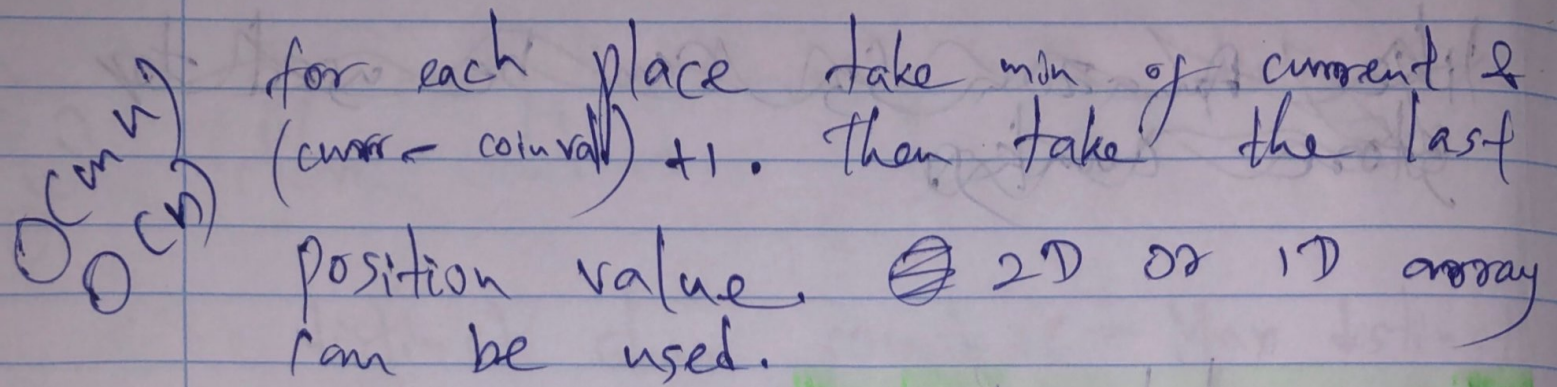 for each place take min of current &
(curr - coinval) +1. Then take the last
position value. 2D or 1D array
can be used.
O(mn)
O(n)